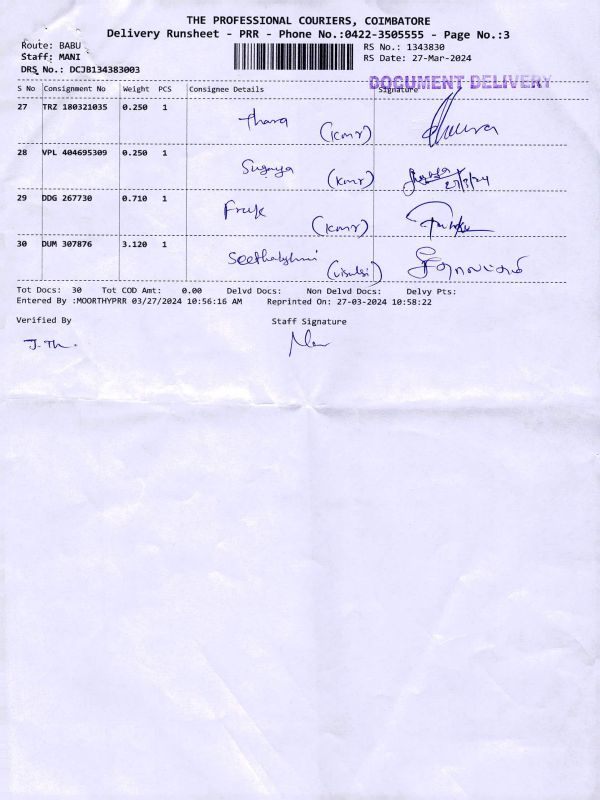 THE PROFESSIONAL COURIERS, COIMBATORE
Delivery Runsheet - PRR - Phone No.:0422-3505555 - Page No.:3
Route: BABU
Staff: MANI
DRS No.: DCJB134383003
RS No.: 1343830
RS Date: 27-Mar-2024
DOCUMENT DELIVERY
S No Consignment No Weight PCS Consignee Details Signature
27 TRZ 180321035 0.250 1 Thara (kmr)
28 VPL 404695309 0.250 1 Suganya (kmr) 27/3/24
29 DDG 267730 0.710 1 (kmr)
30 DUM 307876 3.120 1 Seethalakshmi
Tot Docs: 30 Tot COD Amt: 0.00 Delvd Docs: Non Delvd Docs: Delvy Pts:
Entered By :MOORTHYPRR 03/27/2024 10:56:16 AM Reprinted On: 27-03-2024 10:58:22
Verified By Staff Signature